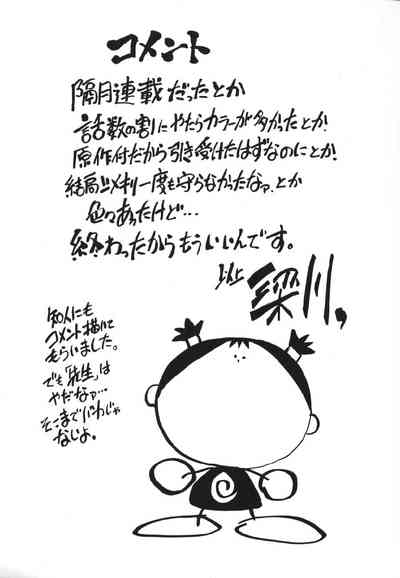 コメント
隔月連載だったとか
話数の割にやたらカラーが多かったとか!
原作付だから引き受けたはずなのにとか!
結局〆メキリ一度も守らなかったなァ、とか
色々あったけど…
終わったからもういいんです。
以上 梁川、
知人にも
コメント描いて
もらいました。
でも「先生」は
やだなァ…
そこまでババァじゃ
ないよ。